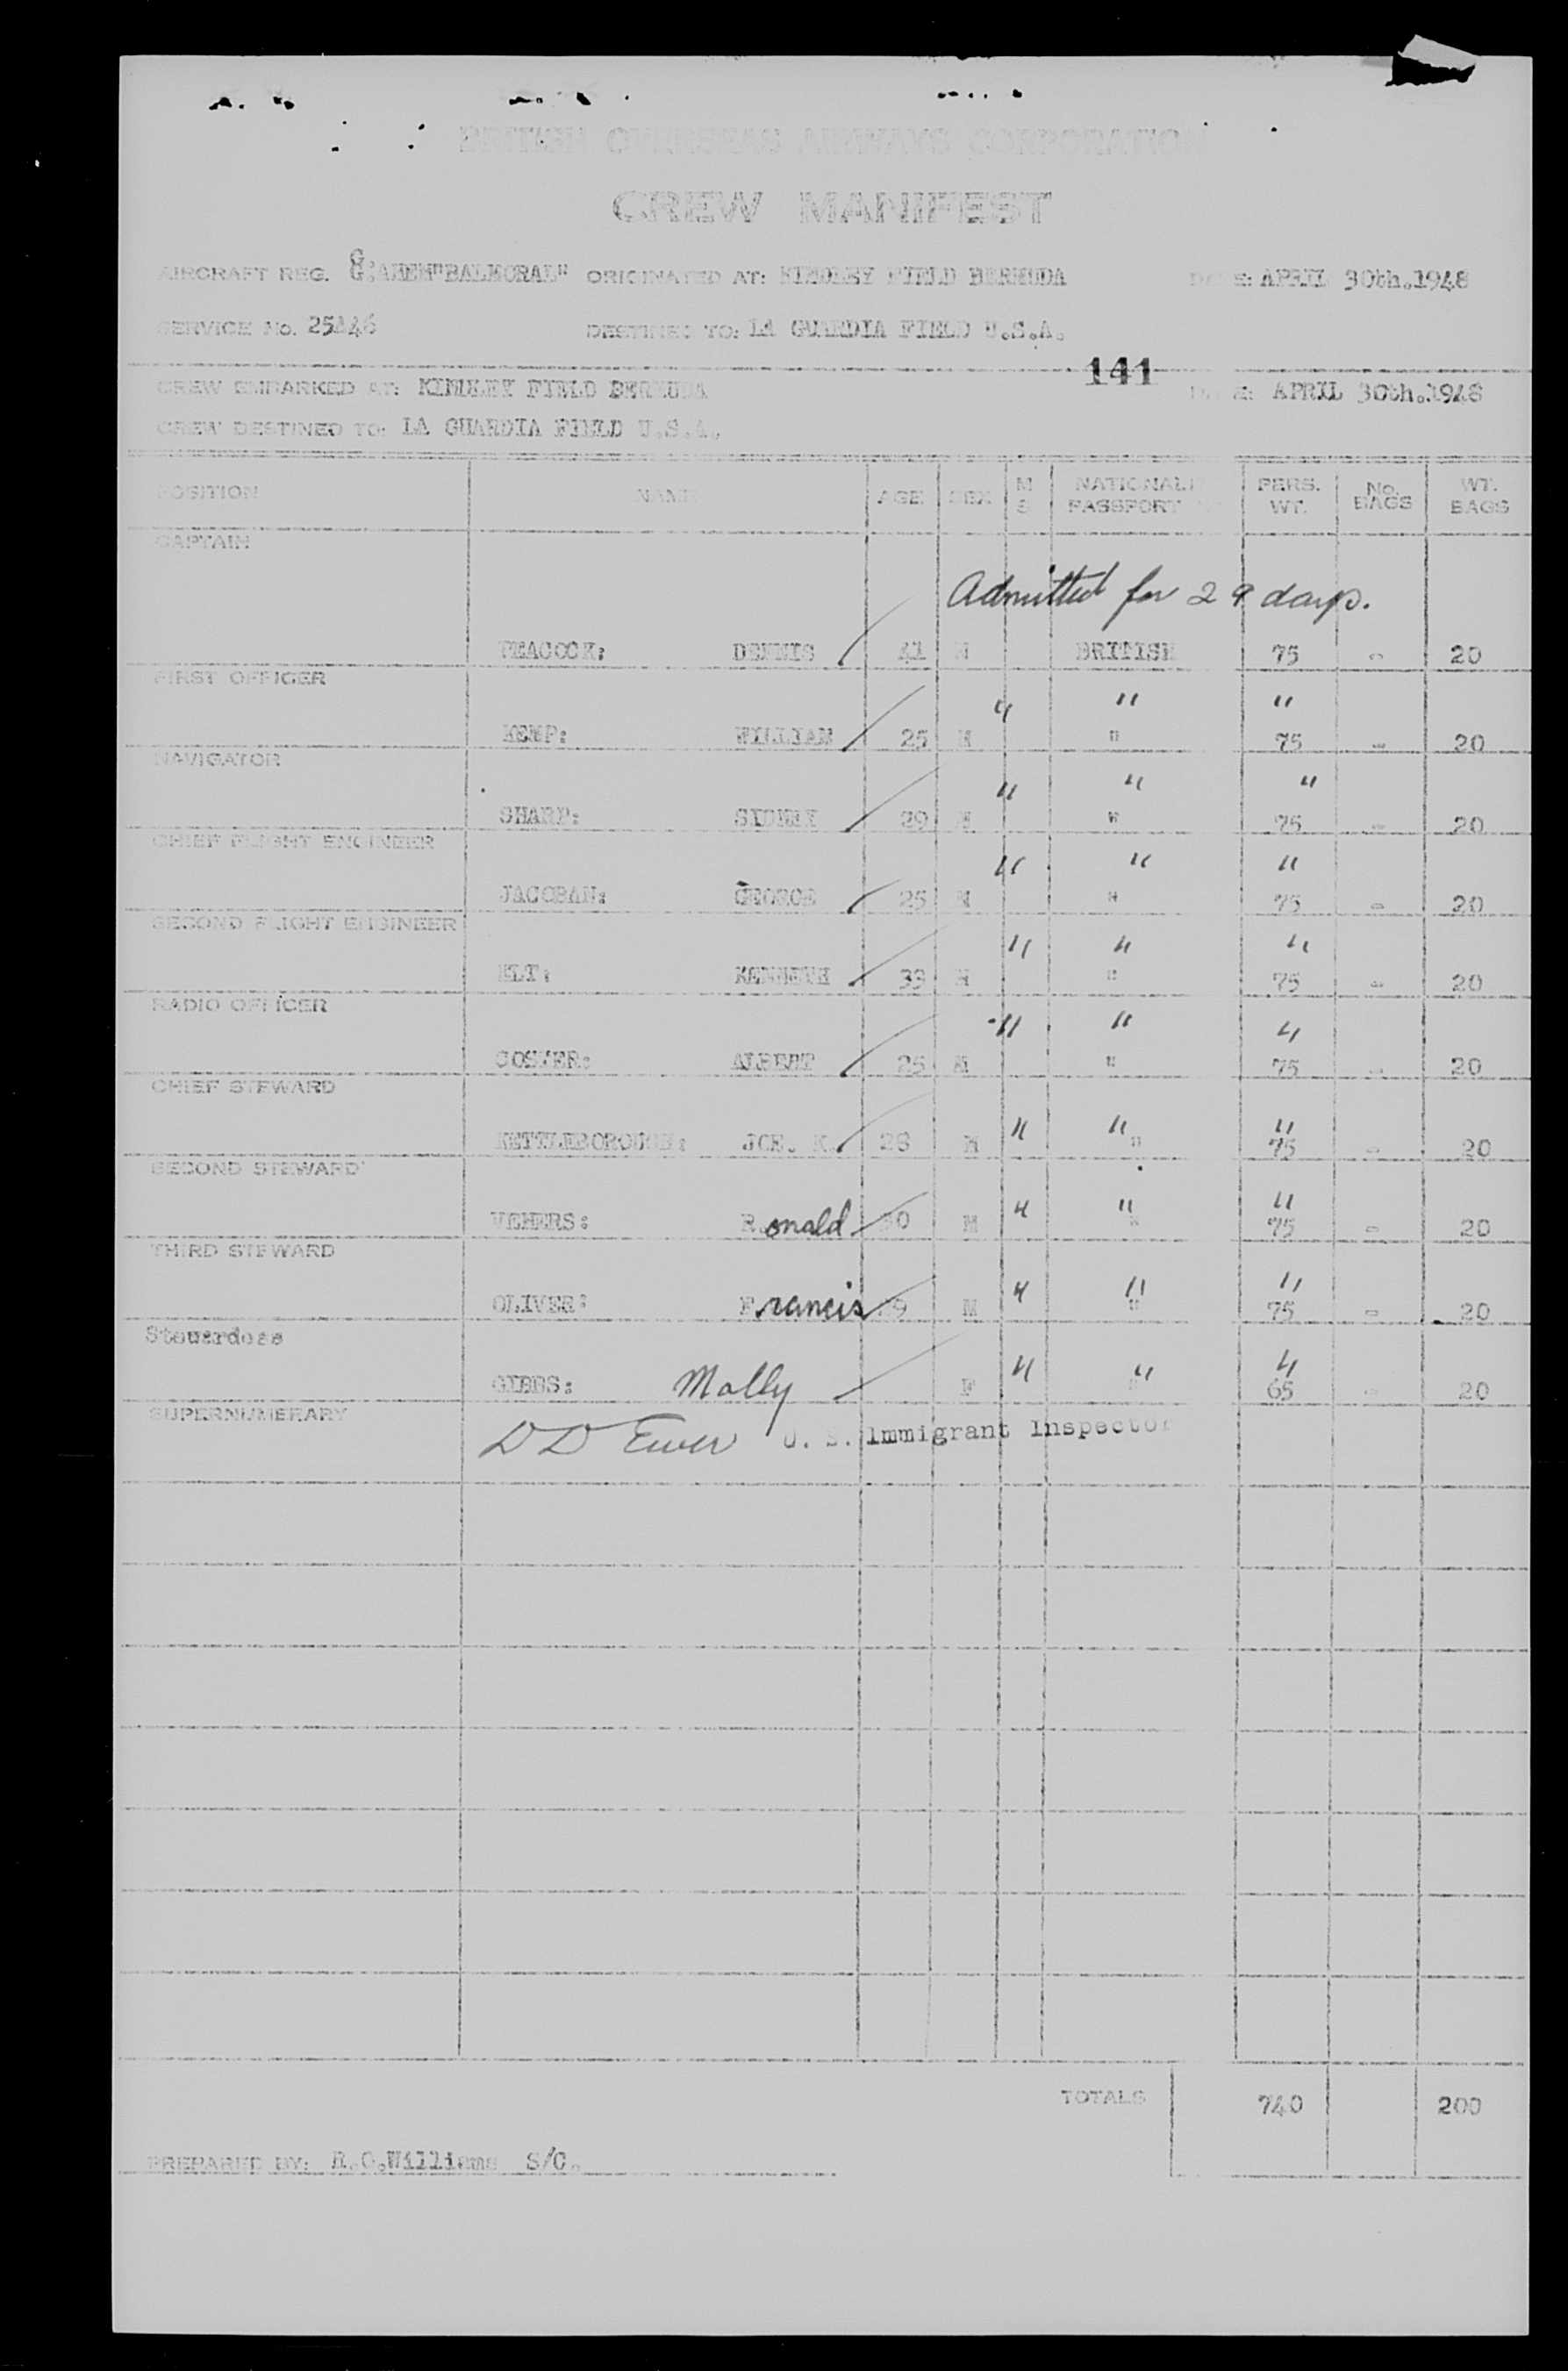 BRITISH OVERSEAS AIRWAYS CORPORATION
CREW MANIFEST
AIRCRAFT REG. "BALMORAL" ORIGINATED AT: KINDLEY FIELD BERMUDA DATE: APRIL 30th.1948
SERVICE No. DESTINED TO: LA GUARDIA FIELD U.S.A.
141
CREW EMBARKED AT: KINDLEY FIELD BERMUDA DATE: APRIL 30th.1948
CREW DESTINED TO: LA GUARDIA FIELD U.S.A.
POSITION NAME AGE SEX M S NATIONALITY PASSPORT PERS. WT. No. BAGS WT. BAGS
CAPTAIN
Admitted for 29 days.
PEACOCK: DENNIS 41 M BRITISH 75 - 20
FIRST OFFICER
" " "
KEMP: WILLIAM 25 M " 75 - 20
NAVIGATOR
" " "
SHARP: SIDNEY 29 M " 75 - 20
CHIEF FLIGHT ENGINEER
" " "
JACOBAN: GEORGE 25 M " 75 - 20
SECOND FLIGHT ENGINEER
" " "
ELT: KENNETH 39 M " 75 - 20
RADIO OFFICER
" " "
COSTER: ALBERT 25 M " 75 - 20
CHIEF STEWARD
" " "
KETTLEBOROUGH: JOE. K. 28 M " 75 - 20
SECOND STEWARD
" " "
VEHERS: Ronald 30 M " 75 - 20
THIRD STEWARD
" " "
OLIVER: Francis 9 M " 75 - 20
Stewardess
" " "
GIBBS: Molly F " 65 - 20
SUPERNUMERARY
D D Ewer U. S. Immigrant Inspector
TOTALS 740 200
PREPARED BY: R.O.Williams S/O.